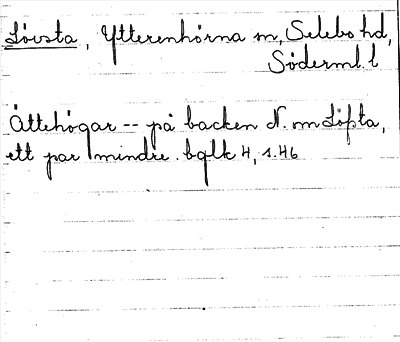 Lövsta, Ytterenhörna sn, Selebo hd,
Söderml. l
Ättehögar -- på backen N. om Löfsta,
ett par mindre. bglk 4, s. 46